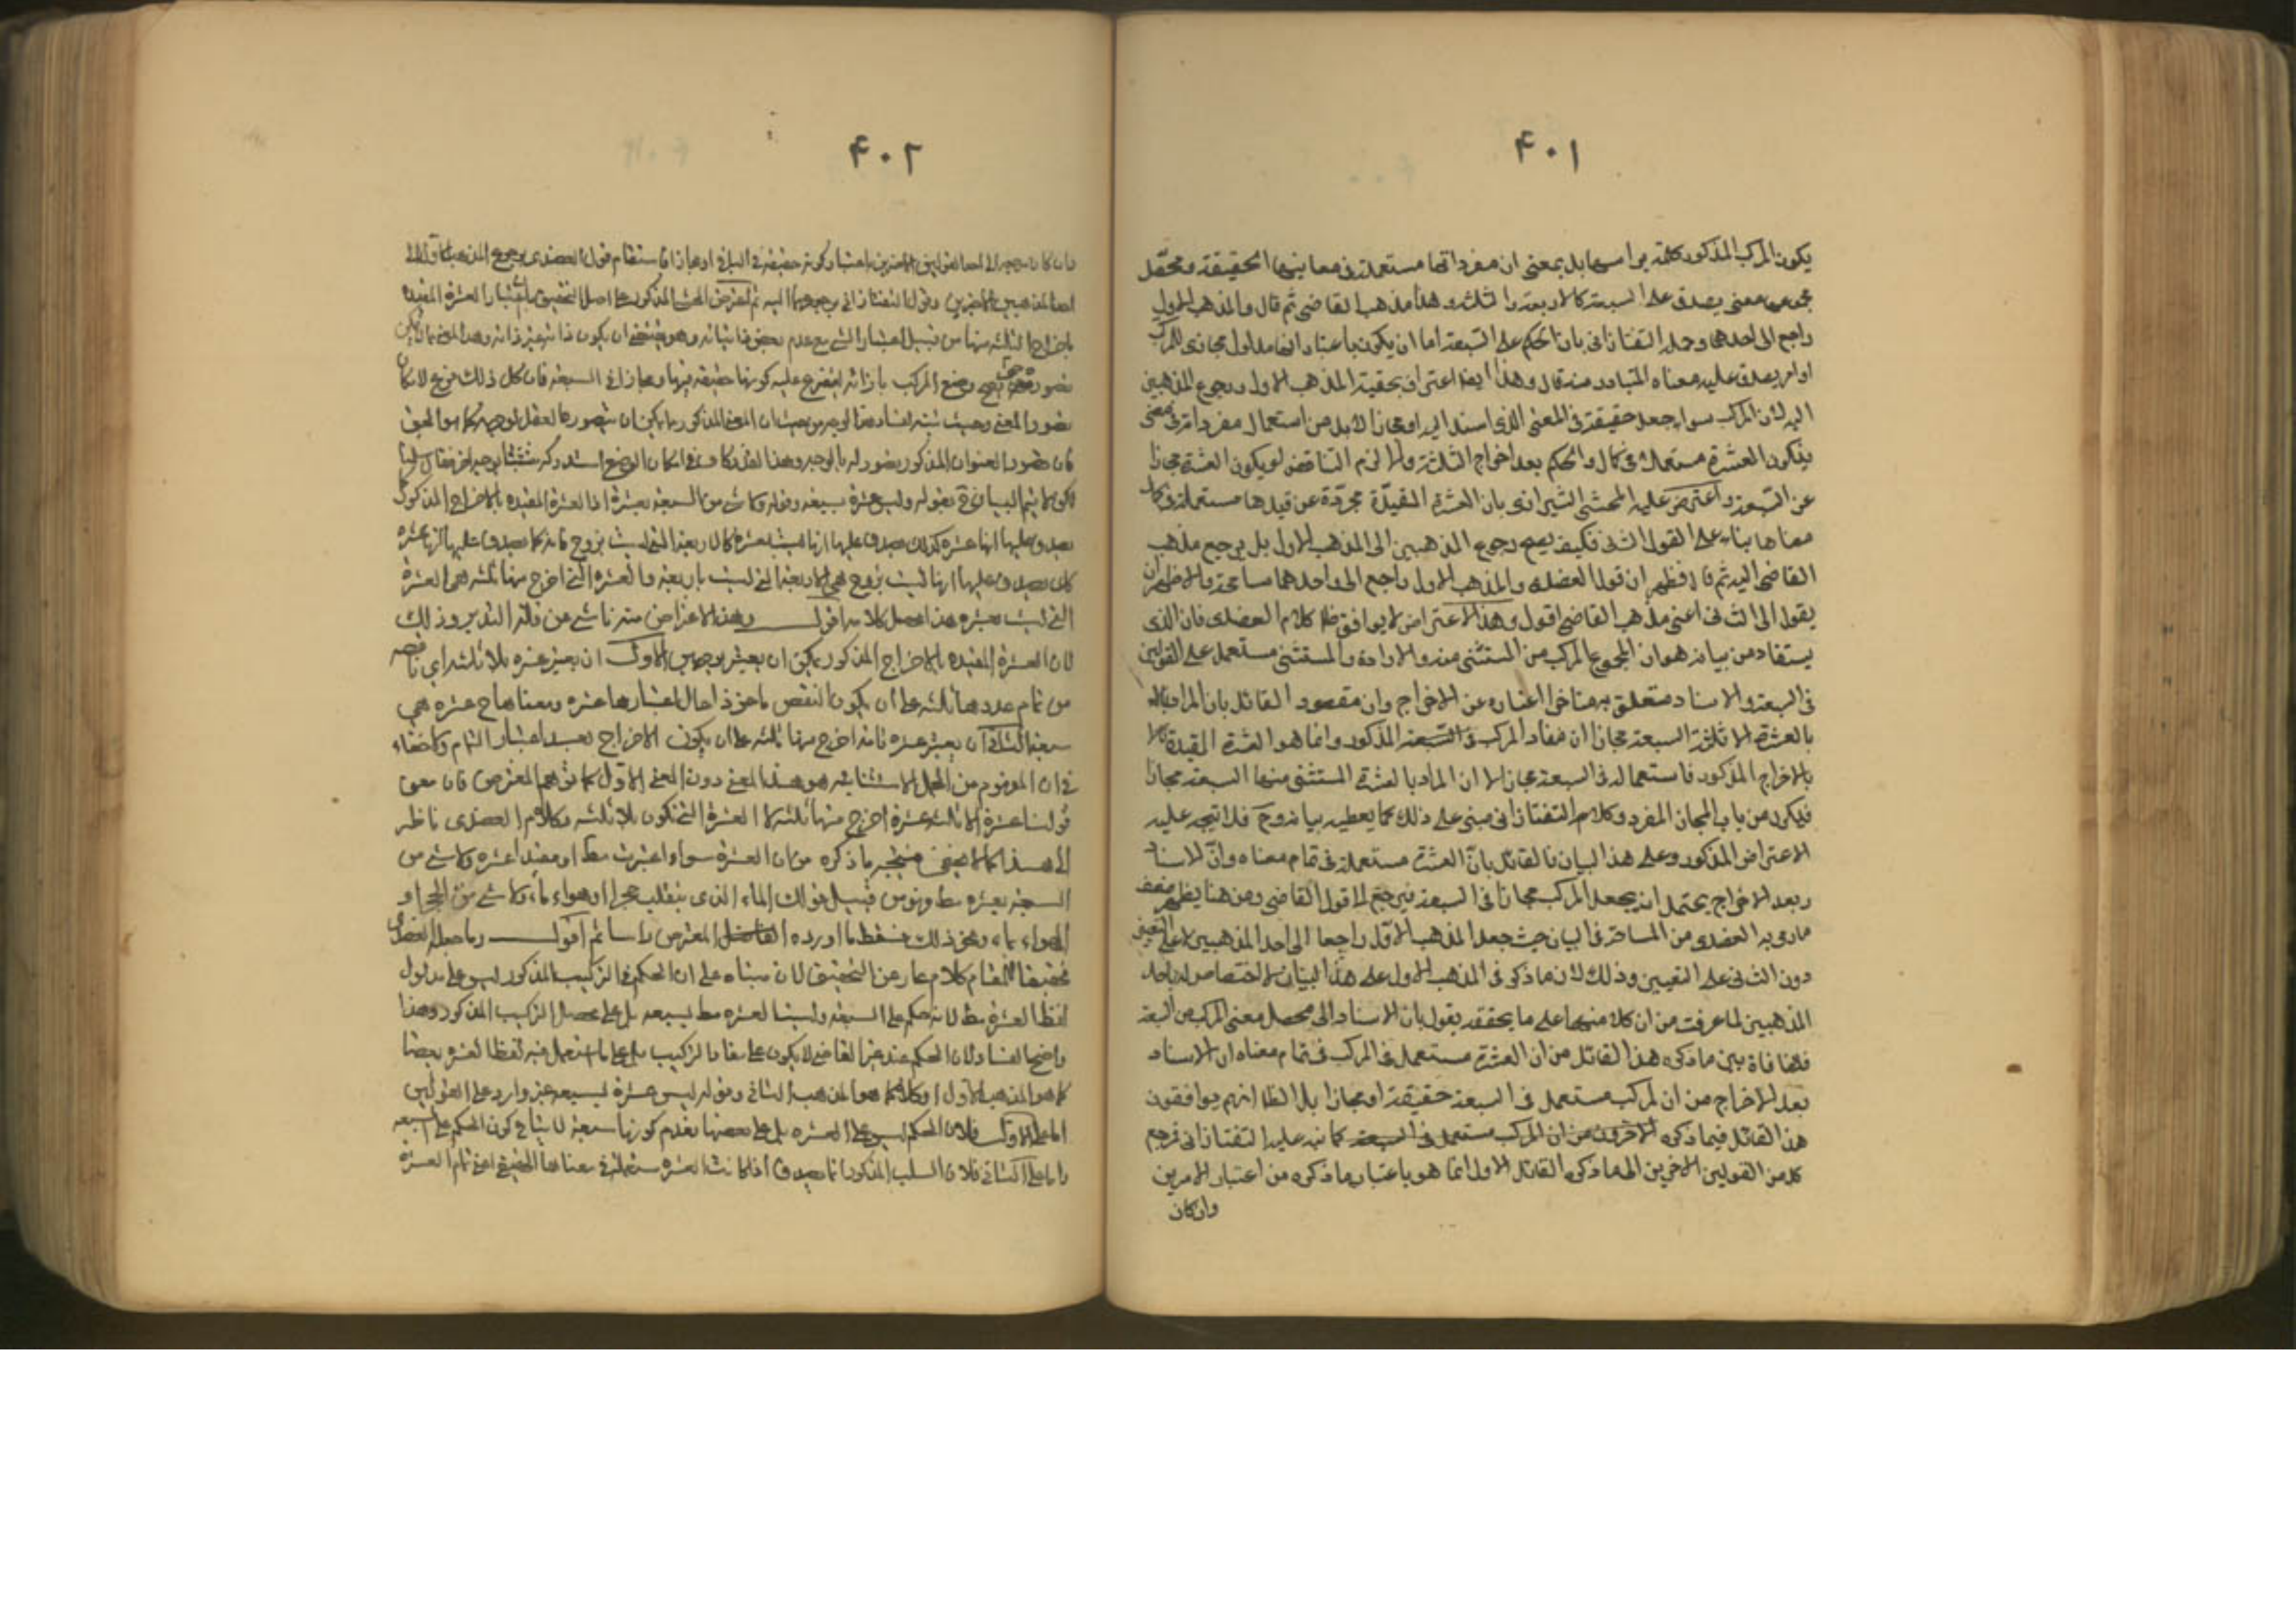 ٤٠١
يكون المركب المذكور كلمة براسها بل بمعنى ان مفرداتها مستعملة في معانيها الحقيقة ومحصل
مجموعه معنى يصدق على السبعة كالاربعة والثلثة وهذا مذهب القاضي ثم قال والمذهب الاول
راجع الى احدهما وحمله التفتازاني بان الحكم على السبعة اما ان يكون باعتبار انها مدلول مجازي للمركب
او امر يصدق عليه معناه المتبادر منه قال وهذا ايضا اعتراف بحقية المذهب الاول ورجوع المذهبين
اليه لان المركب سواء جعل حقيقة في المعنى الذي اسند اليه او مجازا لابد من استعمال مفرداته في معنى
فيكون العشرة مستعملة في كمال والحكم بعد اخراج الثلثة والا لزم التناقض لو يكون العشرة مجازا
عن السبعة واعترض عليه المحشي الشيرازي بان العشرة المقيدة مجردة عن قيدها مستعملة في كمال
معناها بناء على القول الثاني فكيف يصح رجوع المذهبين الى المذهب الاول بل يرجع مذهب
القاضي اليه ثم قال فظهر ان قول العضدي والمذهب الاول راجع الى احدهما مسامحة والاظهر ان
يقول الى الثاني اعني مذهب القاضي اقول وهذا الاعتراض لا يوافق ظ كلام العضدي فان الذي
يستفاد من بيانه هو ان المجموع المركب من المستثنى منه والاداة والمستثنى مستعمل على القولين
في السبعة والاسناد متعلق به متاخرا اعتباره عن الاخراج وان مقصود القائل بان المراد
بالعشرة الا ثلثة السبعة مجازا ان مفاد المركب السبعة المذكور وانما هو العشرة المقيدة
بالاخراج المذكور فاستعماله في السبعة مجاز لا ان المراد بالعشرة المستثنى منها السبعة مجازا
فيكون من باب المجاز المفرد وكلام التفتازاني مبني على ذلك كما يعطيه بيانه وح فلا يتجه عليه
الاعتراض المذكور وعلى هذا البيان فالقائل بان العشرة مستعملة في تمام معناه وان الاسناد
بعد الاخراج يحتمل ان يجعل المركب مجازا في السبعة فيرجع الى قول القاضي ومن هنا يظهر ضعف
ما رمي به العضدي من المسامحة في البيان حيث جعل المذهب الاول راجعا الى احد المذهبين لا على التعيين
دون الثاني على التعيين وذلك لان ما ذكر في المذهب الاول على هذا البيان لا اختصاص له باحد
المذهبين لما عرفت من ان كلا منهما على ما يحققه يقول بان الاسناد الى محصل معنى المركب من السبعة
فلا منافاة بين ما ذكره هذا القائل من ان العشرة مستعمل في المركب في تمام معناه ان الاسناد
بعد الاخراج من ان المركب مستعمل في السبعة حقيقة او مجازا بل الظ انهم يوافقون
هذا القائل فيما ذكره الاخرون من ان المركب مستعمل في السبعة كما نبه عليه التفتازاني فرجع
كل من القولين الاخرين الى ما ذكره القائل الاول انما هو باعتبار ما ذكره من اعتبار الامرين
وان كان
٤٠٢
فان كان مرجعه الى احد القولين الاخيرين باعتبار كونه حقيقة في الباقي او مجازا استقام قول العضدي يرجع المذهب الاول الى
احد المذهبين الاخيرين وقول التفتازاني برجوعهما اليه ثم اعترض المحشي المذكور على اصل التحقيق بان اعتبار العشرة المقيدة
باخراج الثلثة منها من قبيل اعتبار الشيء مع عدم بعض ذاتياته وهو يقتضي ان يكون ذاته غير ذاته وهذا المعنى مما لا يمكن
تصوره حتى يصح وضع المركب بازائه ليتفرع عليه كونها حقيقة فيها ومجازا في السبعة فان كل ذلك فرع لامكان
تصور المعنى وحيث تنبه لفساد هذا الوجه من حيث ان المعنى المذكور مما يمكن ان يتصوره العقل بوجه كما هو المحقق
فان حضور العنوان المذكور تصور له بالوجه وهذا القدر كاف في امكان الوضع استدركه متشبثا بوجه اخر فقال
لكن لا يتم البيان في قوله وليس عشرة سبعة وقوله ولا شيء من السبعة بعشرة اذ العشرة المقيدة بالاخراج المذكور كما
يصدق عليها انها عشرة كذلك يصدق عليها انها ليست بعشرة كالاربعة التي ليست بزوج فانه كما يصدق عليها انها
كذلك يصدق عليها انها ليست بزوج فهي الاربعة التي ليست باربعة والعشرة التي اخرج منها ثلثة هي العشرة
التي ليست بعشرة هذا محصل كلامه اقول وهذا الاعتراض منه ناش عن قلة التدبر وذلك
لان العشرة المقيدة بالاخراج المذكور يمكن ان يعتبر بوجهين الاول ان يعتبر عشرة بلا ثلثة اي ناقصة
من تمام عددها ثلثة على ان يكون النقص ماخوذا حال اعتبارها عشرة ومعناها ح عشرة هي
سبعة الثاني ان يعتبر عشرة تامة اخرج منها ثلثة على ان يكون الاخراج بعد اعتبار التمام ولا خفاء
في ان المفهوم من الجمل الاستثنائية هو هذا المعنى دون المعنى الاول كما توهمه المعترض فان معنى
قولنا عشرة الا ثلثة عشرة اخرج منها ثلثة لا العشرة التي تكون بلا ثلثة وكلام العضدي ناظر
الى هذا كما لا يخفى فيتجه ما ذكره من ان العشرة سواء اعتبرت مط او مقيدا عشرة ولا شيء من
السبعة بعشرة مط وهو من قبيل قولك الماء الذي ينقلب حجرا او هواء ماء ولا شيء من الحجر او
الهواء ماء ونحو ذلك فسقط ما اورده الفاضل المعترض راسا ثم اقول وما جعله العضدي
تحقيقا للمقام كلام عار عن التحقيق لان مبناه على ان الحكم في التركيب المذكور ليس على مدلول
لفظ العشرة مط لانه حكم على السبعة وليست العشرة مط بسبعة بل على محصل التركيب المذكور وهذا
واضح الفساد لان الحكم عند غير القاضي لا يكون على مفاد التركيب بل على ما استعمل فيه لفظ العشرة بعضا
كما هو المذهب الاول او كلا كما هو المذهب الثاني وقوله ليس عشرة بسبعة غير وارد على القولين
اما على الاول فلان الحكم ليس على العشرة بل على بعضها بعدم كونها سبعة لا ينافي كون الحكم على السبعة
واما على الثاني فلان السلب المذكور انما يصدق اذا كانت العشرة مستعملة في معناها الحقيقي اعني تمام العشرة